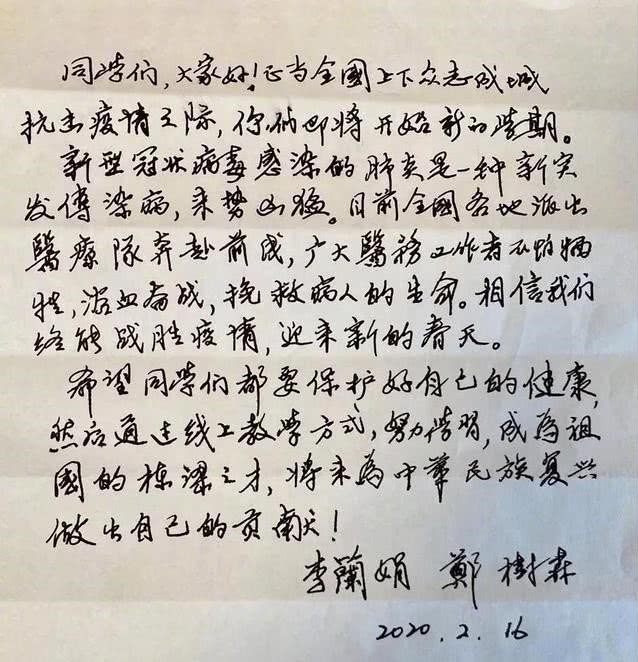 同学们，大家好！正当全國上下众志成城
抗击疫情之际，你们即将开始新的学期。
新型冠状病毒感染的肺炎是一种新突
发传染病，来势凶猛。目前全國各地派出
醫療隊奔赴前线，广大醫務工作者不怕牺
牲，浴血奋战，挽救病人的生命。相信我们
终能战胜疫情，迎来新的春天。
希望同学们都要保护好自己的健康，
然后通过线上教学方式，努力学習，成為祖
國的栋梁之才，将来為中華民族复兴
做出自己的贡献！
李蘭娟 鄭樹森
2020.2.16